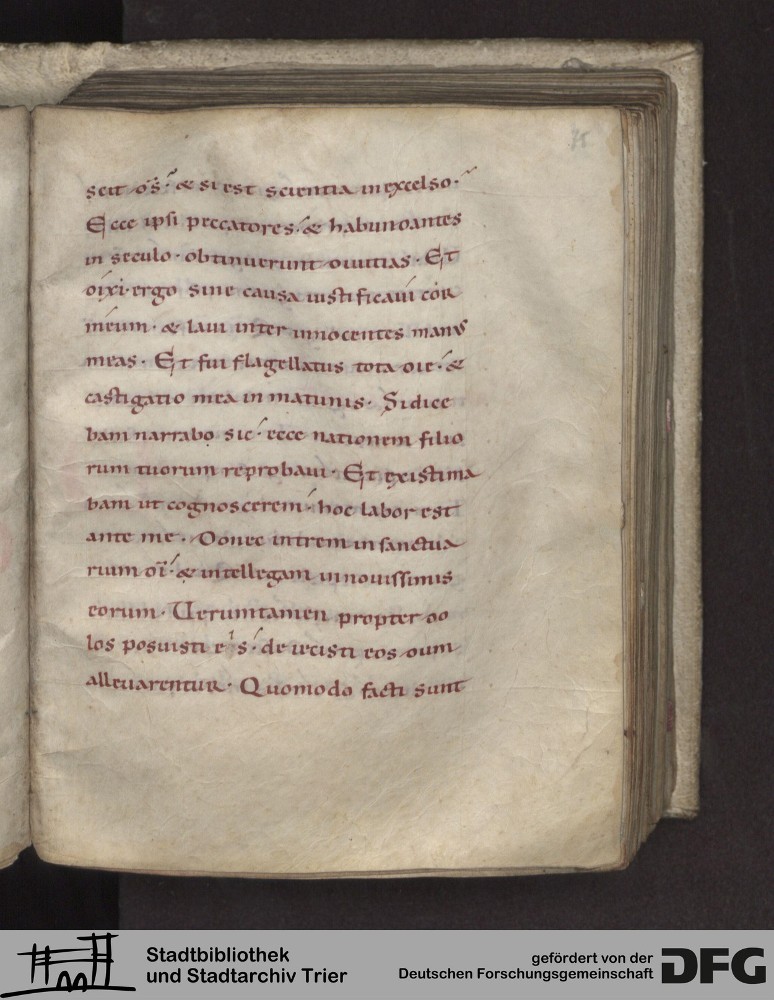 75
scit ds̄· & si est scientia in excelso·
Ecce ipsi peccatores· & habundantes
in seculo· obtinuerunt divitias· Et
dixi· ergo sine causa iustificavi cor
meum· & lavi inter innocentes manus
meas· Et fui flagellatus tota die· &
castigatio mea in matutinis· Si dice
bam narrabo sic· ecce nationem filio
rum tuorum reprobavi· Et existima
bam ut cognoscerem· hoc labor est
ante me· Donec intrem in sanctua
rium dī· & intellegam in novissimis
eorum· Uerumtamen propter do
los posuisti eis· deiecisti eos dum
allevarentur· Quomodo facti sunt
Stadtbibliothek
und Stadtarchiv Trier
gefördert von der
Deutschen Forschungsgemeinschaft
DFG